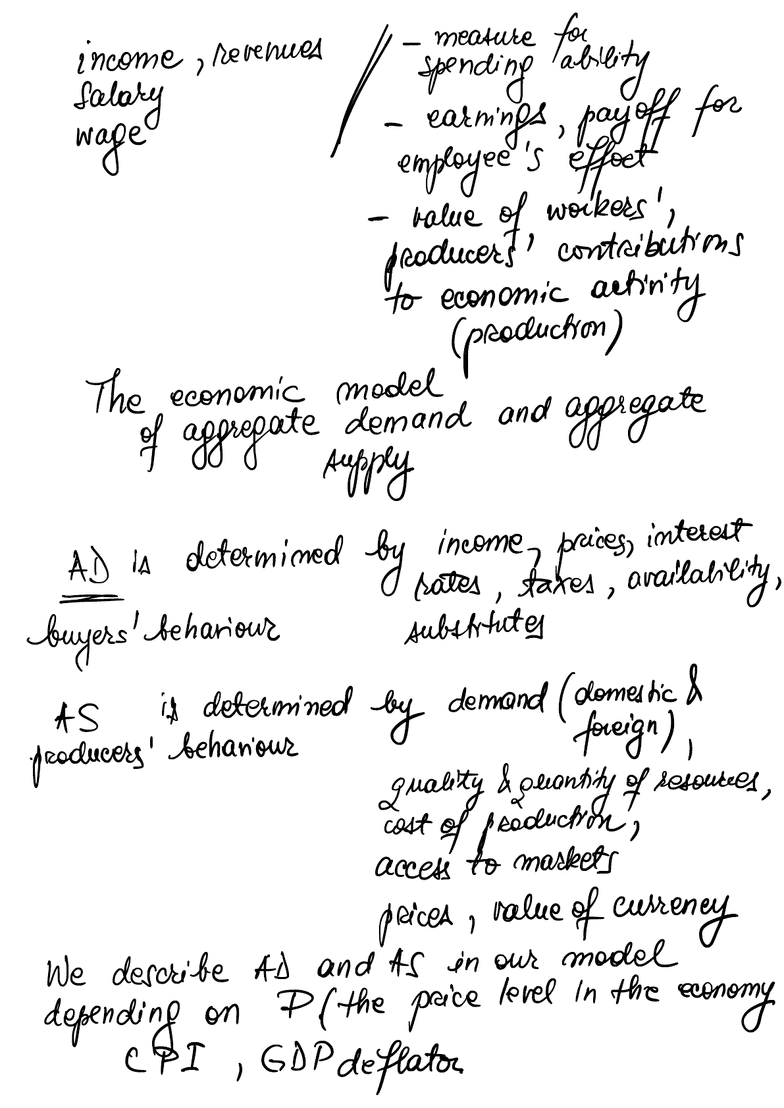 income, revenues
salary
wage
- measure for
spending ability
- earnings, payoff for
employee's effort
- value of workers',
producers' contributions
to economic activity
(production)
The economic model
of aggregate demand and aggregate
supply
AD is determined by income, prices, interest
rates, taxes, availability,
buyers' behaviour substitutes
AS is determined by demand (domestic &
foreign),
producers' behaviour
quality & quantity of resources,
cost of production,
access to markets
prices, value of currency
We describe AD and AS in our model
depending on P (the price level in the economy
CPI, GDP deflator